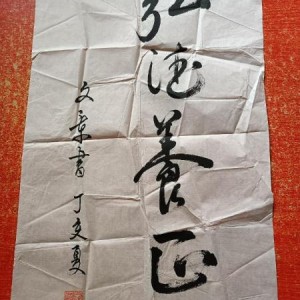 弘德養正
丁亥夏 文章書